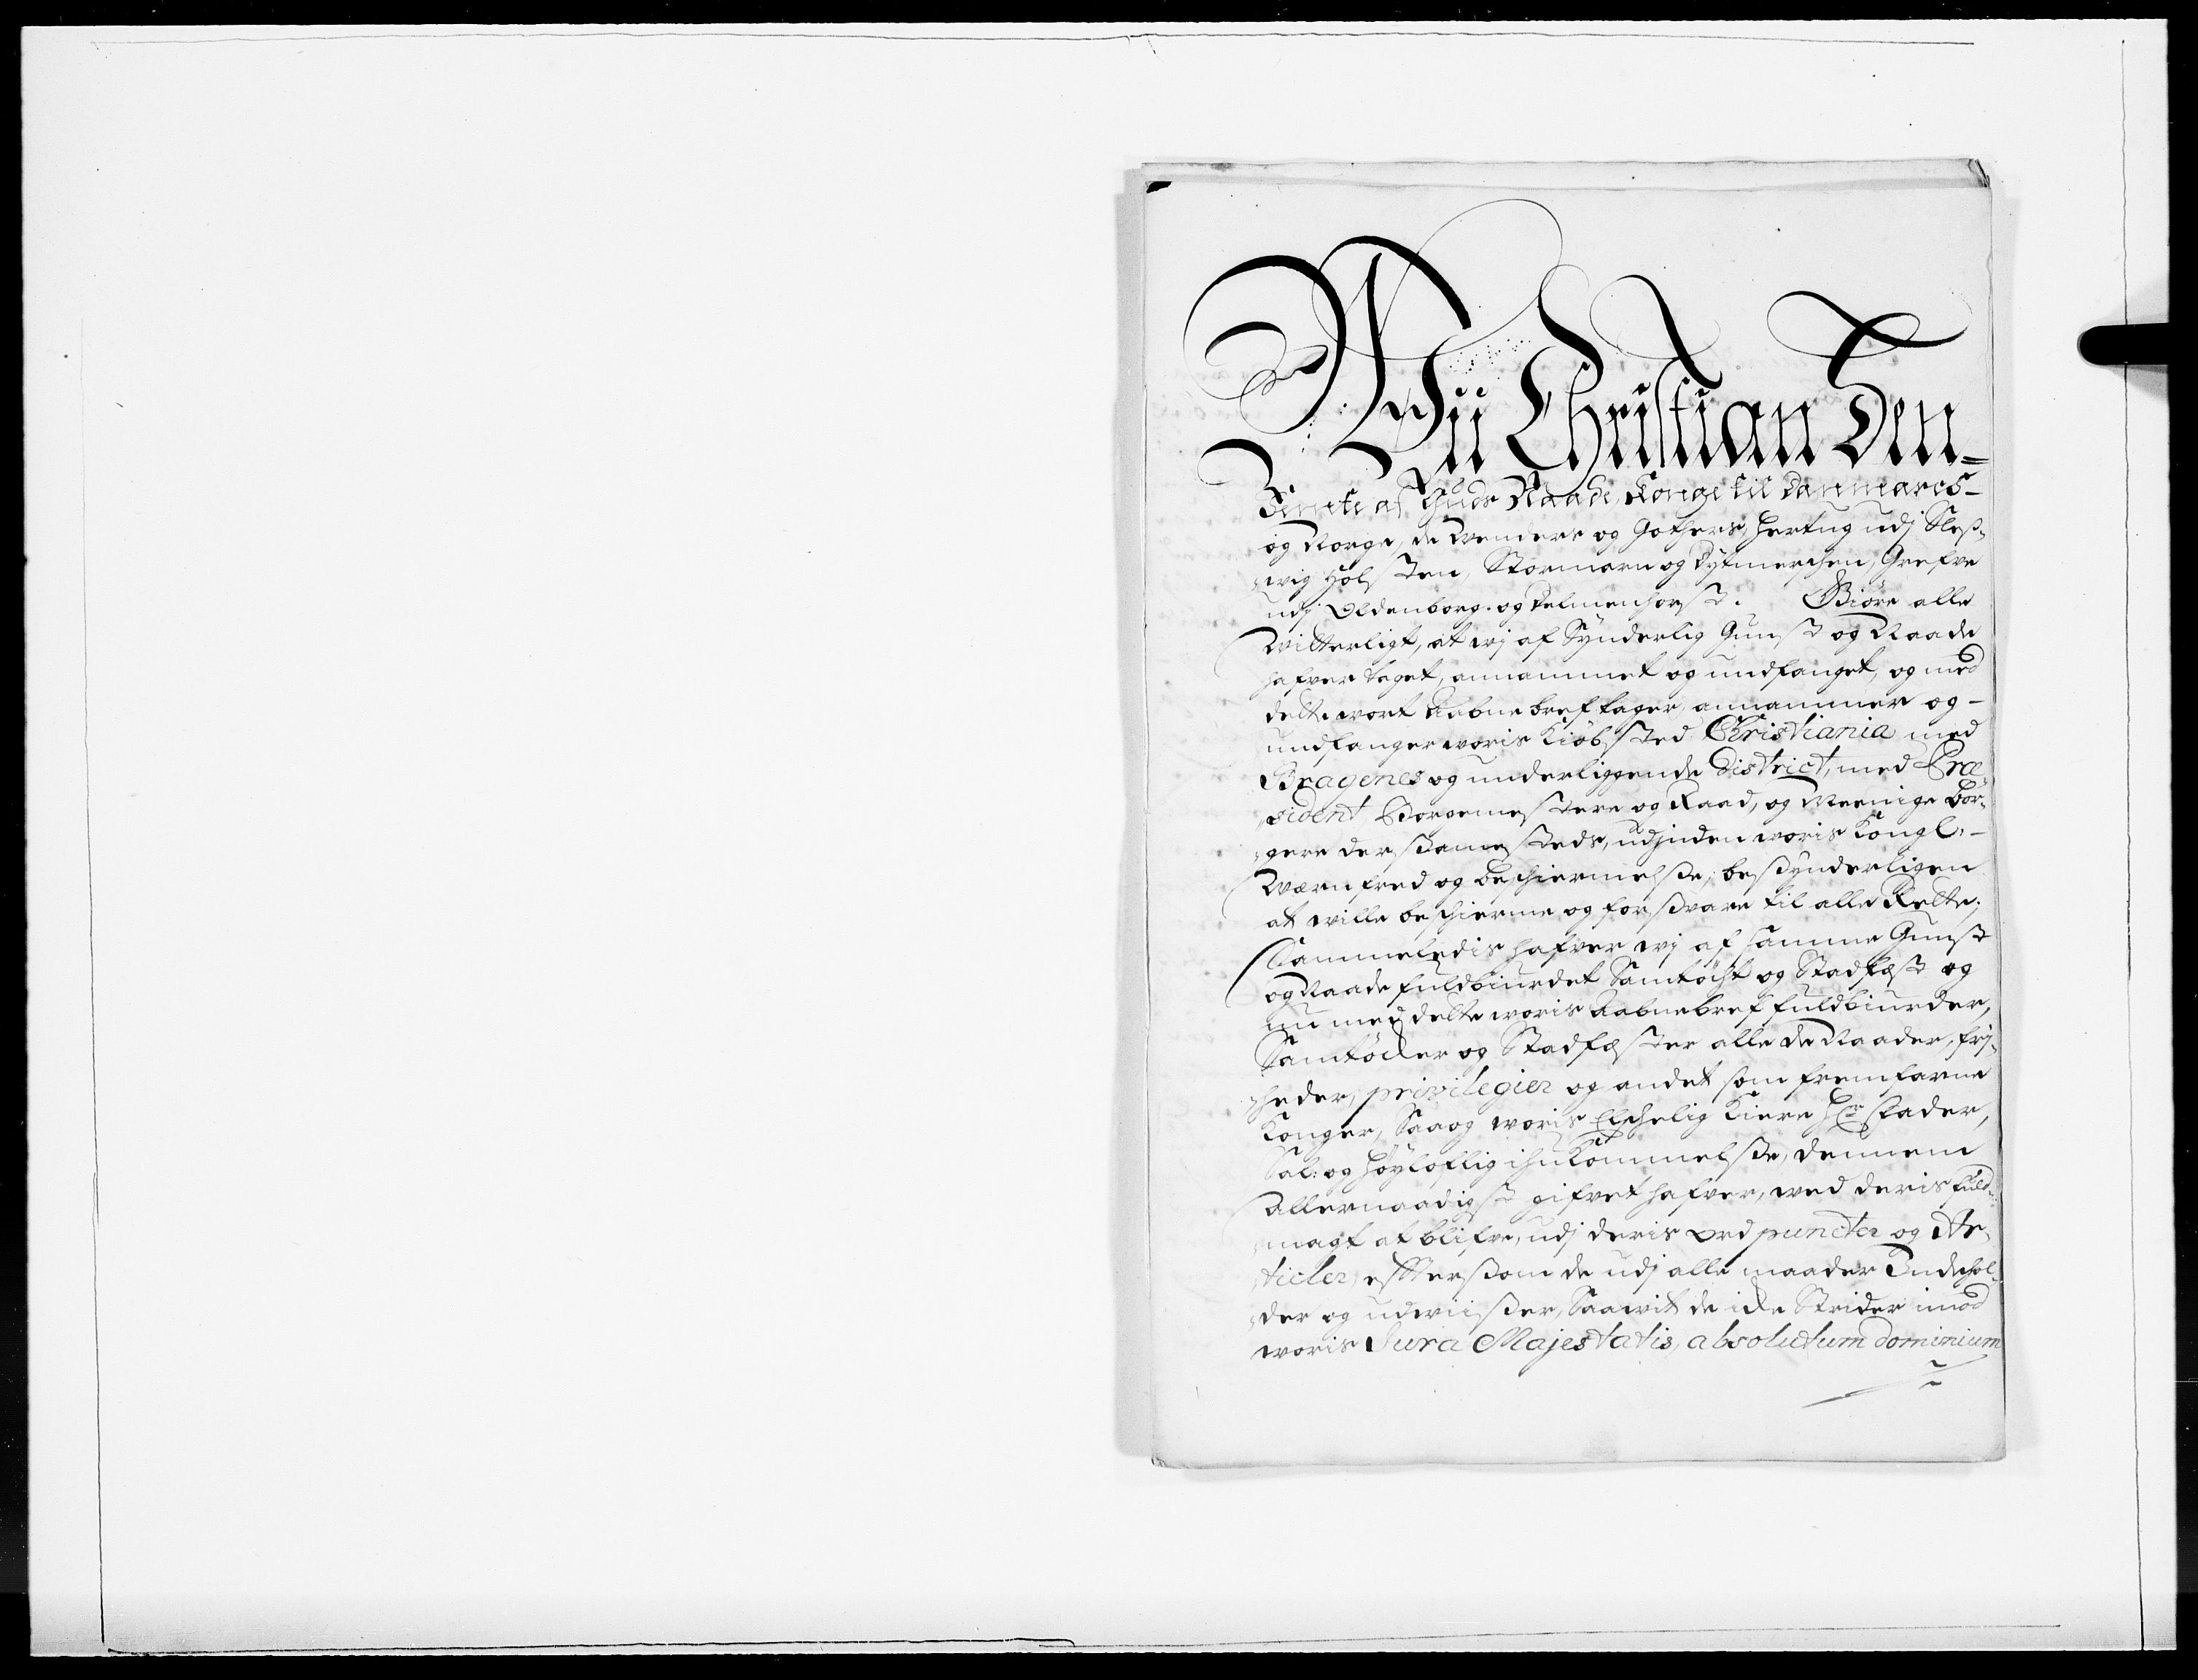 Wii Christian Den-
Femte af Guds Naade Konge til Danmarcs-
og Norge, de Wenders og Gothers, Hertug udj Sleß-
wig Holsten, Stormarn og Dytmerschen, Grefve
udj Oldenborg og Delmenhorst. Giøre alle
Witterligt, at wj af Synderlig Gunst og Naade
hafver taget, annammet og undfanget, og med
dette wort Aabne bref tager, annammer og-
undfanger woris Kiøbsted Christiania med
Bragenes og underliggende District, med Præ-
sident Borgemestere og Raad, og Meenige Bor-
gere dersammesteds, udjnden woris Kongl:
Wærn fred og beschiermelße, besynderligen
at wille beschierme og forsware til alle Rette.
Sammeledis hafver wj af samme Gunst
og Naade fuldbiurdet Samtöcht og Stadfest og
nu med dette woris Aabnebref fuldbiurder,
Samtöcker og Stadfester alle de Naader, frj-
heder, privilegier og andet som fremfarne
Konger, Saaog woris Elschelig Kiere Hr Fader,
Sal: og Høyloflig ihukommelße, dennem
Allernaadigst gifvet hafver, wed deris fuld-
magt at blifve, udj deris ord puncter og Ar-
ticler, effterßom de udj alle maader Indehol-
der og udwiißer, Saawit de icke Strider imod
woris Jura Majestatis, absolutum dominium